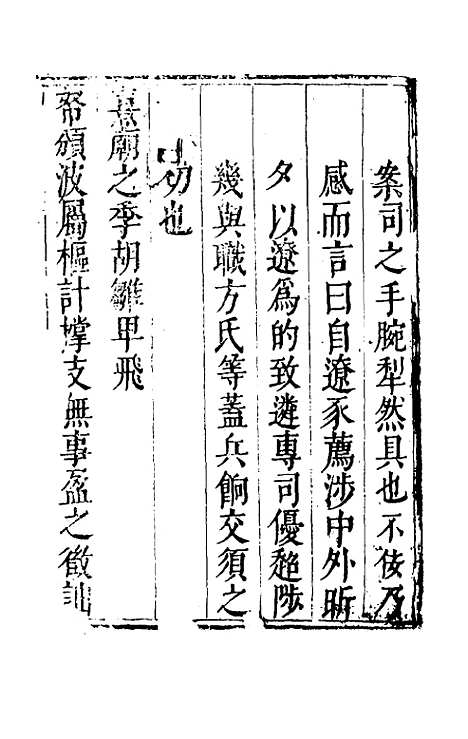 案司之手腕犁然具也不佞乃
感而言曰自遼豕薦涉中外昕
夕以遼爲的致遴專司優趂陟
幾與職方氏等蓋兵餉交須之
切也
廟之季胡雛甲飛
帑頯波屬樞計撑支無事盈之徵訕